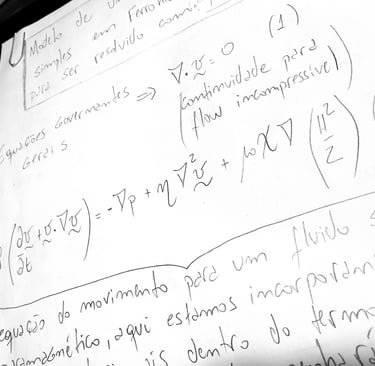 Modelo de um
simples em Ferro
para ser resolvido com
Equações Governantes ⇒ ∇·v = 0 (1)
Gerais (continuidade para
flow incompressive)
(∂v/∂t + v·∇v) = -∇p + η∇²v + μ₀χ∇(H²/2)
equação do movimento para um fluido
aqui estamos incorporan
dentro do termo